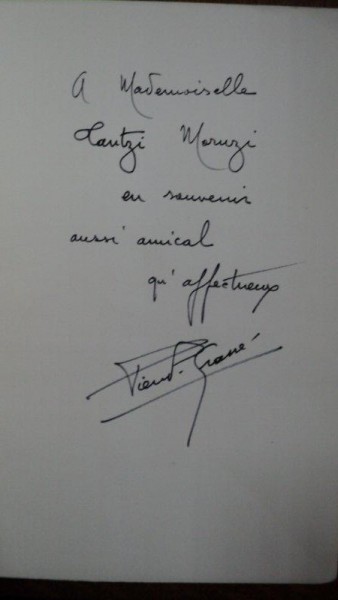 A Mademoiselle
Tantzi Moruzi
en souvenir
aussi amical
qu'affectueux